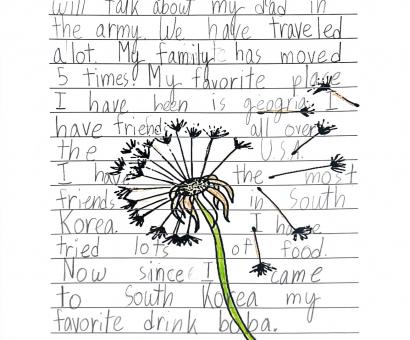 will talk about my dad in
the army. We have traveled
alot. My family has moved
5 times! My favorite place
I have been is geogria. I
have friends all over
the U.S.A.
I have the most
friends in South
Korea. I have
tried lots of food.
Now since I came
to South Korea my
favorite drink boba.